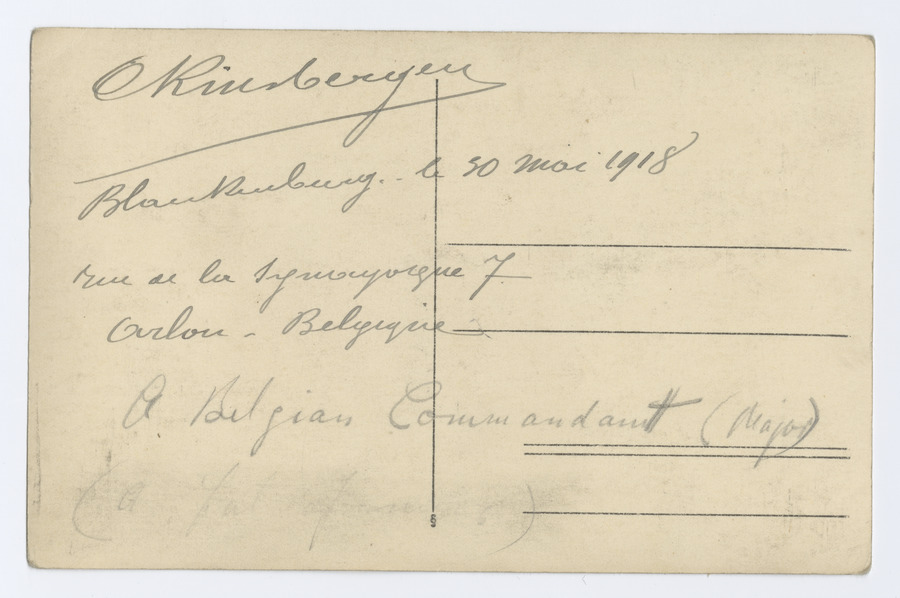 Kinsbergen
Blankenburg. le 30 mai 1918
rue de la Synagogue 7
Arlon - Belgique
A Belgian Commandant (Major)
(A